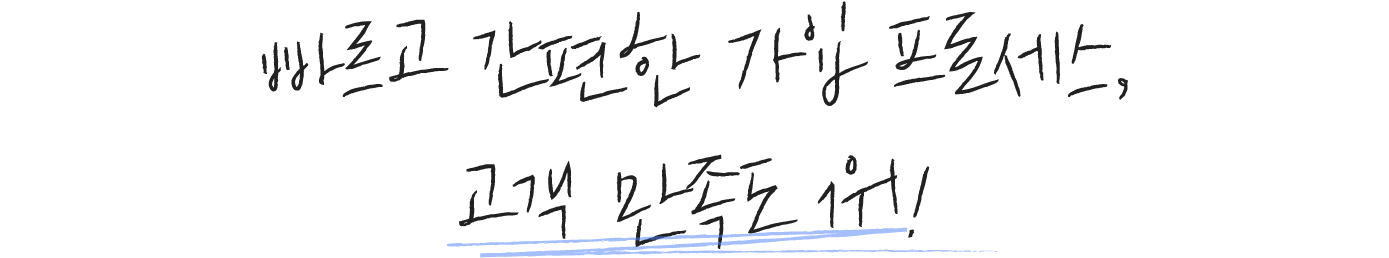 빠르고 간편한 가입 프로세스,
고객 만족도 1위!